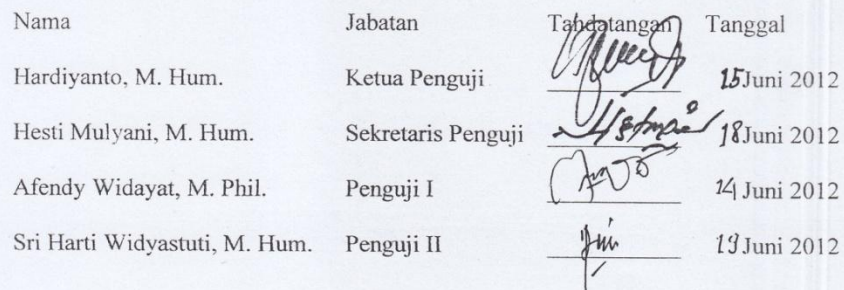 Nama Jabatan Tandatangan Tanggal
Hardiyanto, M. Hum. Ketua Penguji 15 Juni 2012
Hesti Mulyani, M. Hum. Sekretaris Penguji 18 Juni 2012
Afendy Widayat, M. Phil. Penguji I 14 Juni 2012
Sri Harti Widyastuti, M. Hum. Penguji II 19 Juni 2012